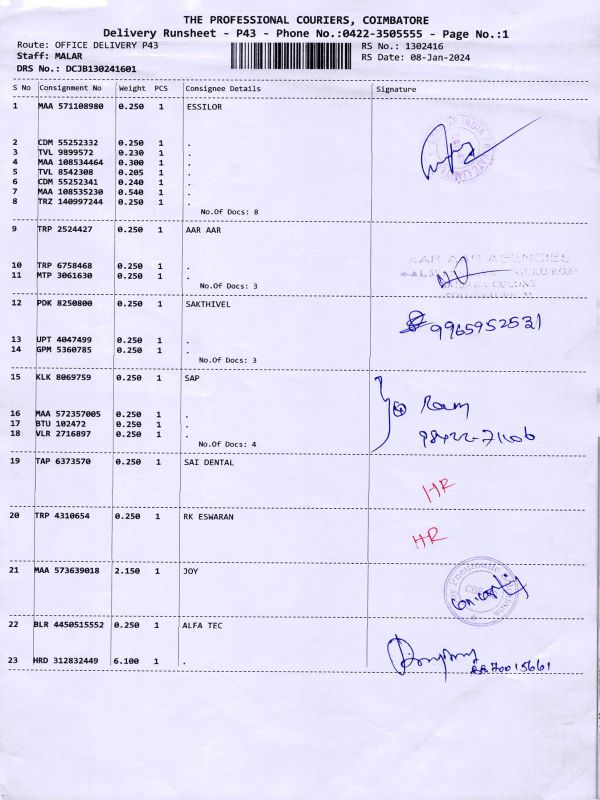 THE PROFESSIONAL COURIERS, COIMBATORE
Delivery Runsheet - P43 - Phone No.:0422-3505555 - Page No.:1
Route: OFFICE DELIVERY P43 RS No.: 1302416
Staff: MALAR RS Date: 08-Jan-2024
DRS No.: DCJB130241601
S No Consignment No Weight PCS Consignee Details Signature
1 MAA 571108980 0.250 1 ESSILOR
2 CDM 55252332 0.250 1 .
3 TVL 9899572 0.230 1 .
4 MAA 108534464 0.300 1 .
5 TVL 8542308 0.205 1 .
6 CDM 55252341 0.240 1 .
7 MAA 108535230 0.540 1 .
8 TRZ 140997244 0.250 1 .
No.Of Docs: 8
9 TRP 2524427 0.250 1 AAR AAR
AAR AAR AGENCIES
10 TRP 6758468 0.250 1 .
11 MTP 3061630 0.250 1 .
No.Of Docs: 3
12 PDK 8250800 0.250 1 SAKTHIVEL
9965952531
13 UPT 4047499 0.250 1 .
14 GPM 5360785 0.250 1 .
No.Of Docs: 3
15 KLK 8069759 0.250 1 SAP
Ram
16 MAA 572357005 0.250 1 .
17 BTU 102472 0.250 1 .
18 VLR 2716897 0.250 1 .
No.Of Docs: 4
19 TAP 6373570 0.250 1 SAI DENTAL
HR
20 TRP 4310654 0.250 1 RK ESWARAN
HR
21 MAA 573639018 2.150 1 JOY
22 BLR 4450515552 0.250 1 ALFA TEC
23 HRD 312832449 6.100 1 .